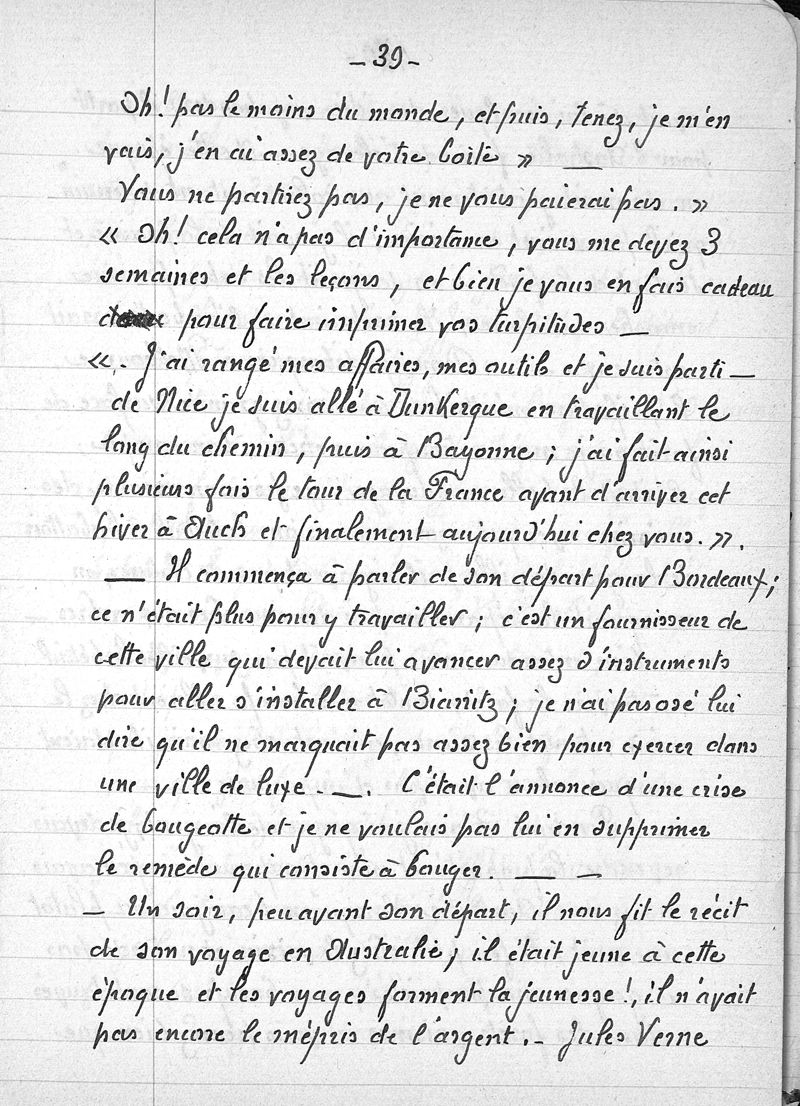 - 39 -
Oh! pas le moins du monde, et puis, tenez, je m'en
vais, j'en ai assez de votre boite » —
Vous ne partirez pas, je ne vous paierai pas. »
« Oh! cela n'a pas d'importance, vous me devez 3
semaines et les leçons, et bien je vous en fais cadeau
pour faire imprimer vos turpitudes —
«. J'ai rangé mes affaires, mes outils et je suis parti —
de Nice je suis allé à Dunkerque en travaillant le
long du chemin, puis à Bayonne ; j'ai fait ainsi
plusieurs fois le tour de la France avant d'arriver cet
hiver à Auch et finalement aujourd'hui chez vous. ».
— Il commença à parler de son départ pour Bordeaux ;
ce n'était plus pour y travailler ; c'est un fournisseur de
cette ville qui devait lui avancer assez d'instruments
pour aller s'installer à Biarritz ; je n'ai pas osé lui
dire qu'il ne marquait pas assez bien pour exercer dans
une ville de luxe . —. C'était l'annonce d'une crise
de bougeotte et je ne voulais pas lui en supprimer
le remède qui consiste à bouger. — —
— Un soir, peu avant son départ, il nous fit le récit
de son voyage en Australie ; il était jeune à cette
époque et les voyages forment la jeunesse !, il n'avait
pas encore le mépris de l'argent. - Jules Verne